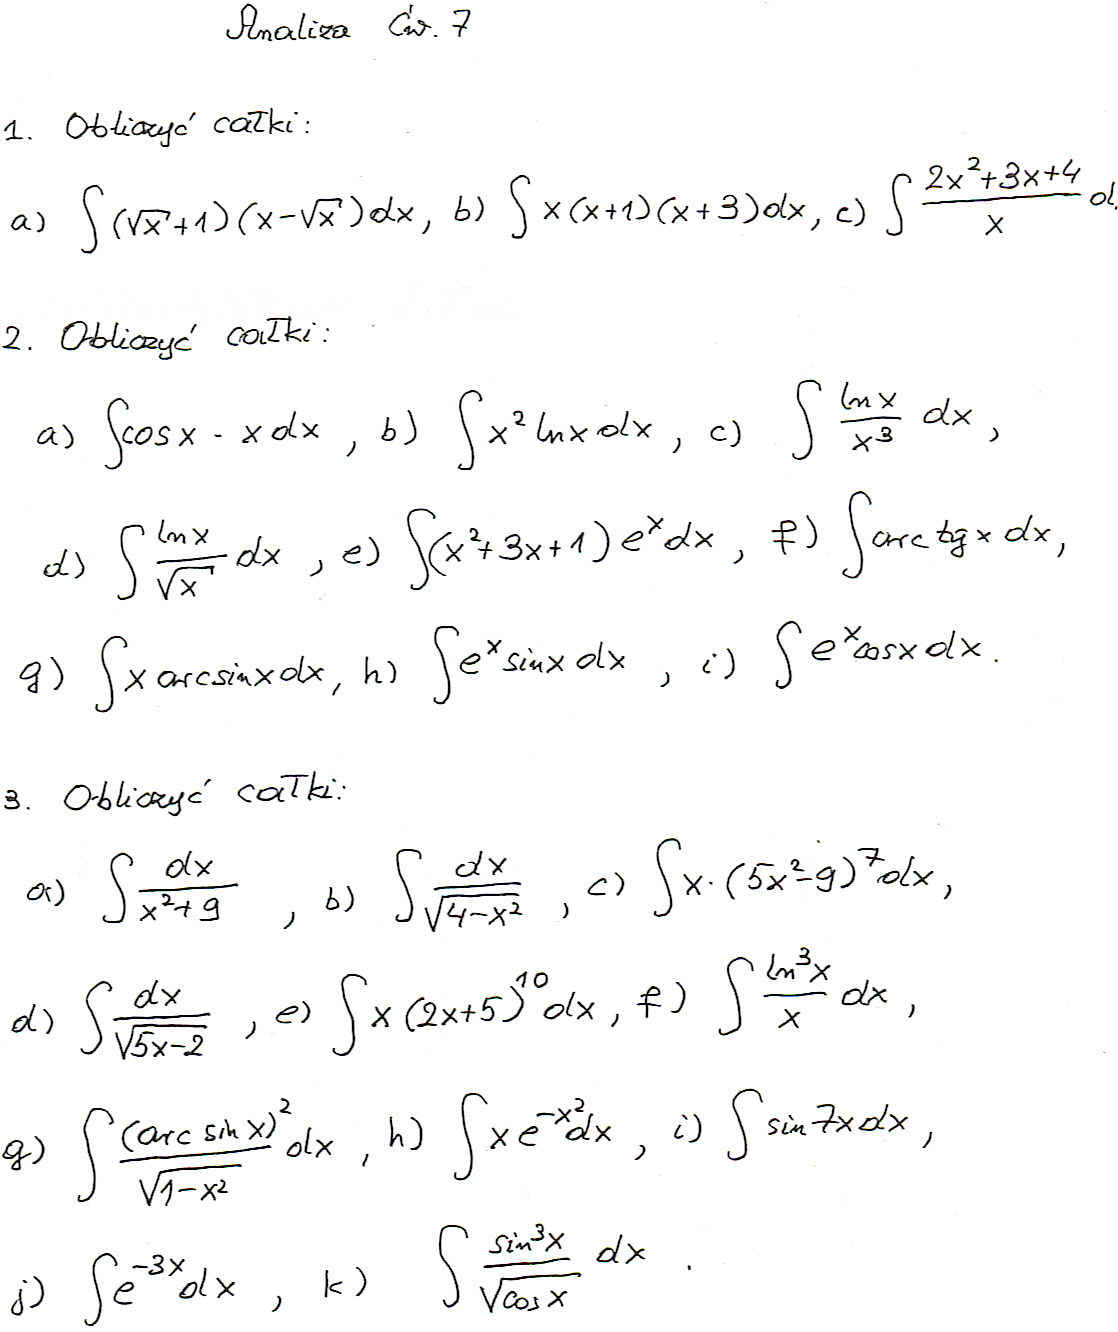 Analiza Ćw. 7
1. Obliczyć całki:
a) ∫(√x+1)(x-√x)dx, b) ∫x(x+1)(x+3)dx, c) ∫ (2x²+3x+4)/x d
2. Obliczyć całki:
a) ∫cosx - x dx, b) ∫x² lnx dx, c) ∫ lnx/x³ dx,
d) ∫ lnx/√x dx, e) ∫(x²+3x+1)eˣdx, f) ∫arc tg x dx,
g) ∫x arcsinx dx, h) ∫eˣ sinx dx, i) ∫eˣcosx dx.
3. Obliczyć całki:
a) ∫ dx/(x²+9), b) ∫ dx/√(4-x²), c) ∫x·(5x²-9)⁷dx,
d) ∫ dx/√(5x-2), e) ∫x(2x+5)¹⁰dx, f) ∫ ln³x/x dx,
g) ∫ (arc sin x)²/√(1-x²) dx, h) ∫xe^(-x²)dx, i) ∫sin7xdx,
j) ∫e^(-3x)dx, k) ∫ sin³x/√(cos x) dx.